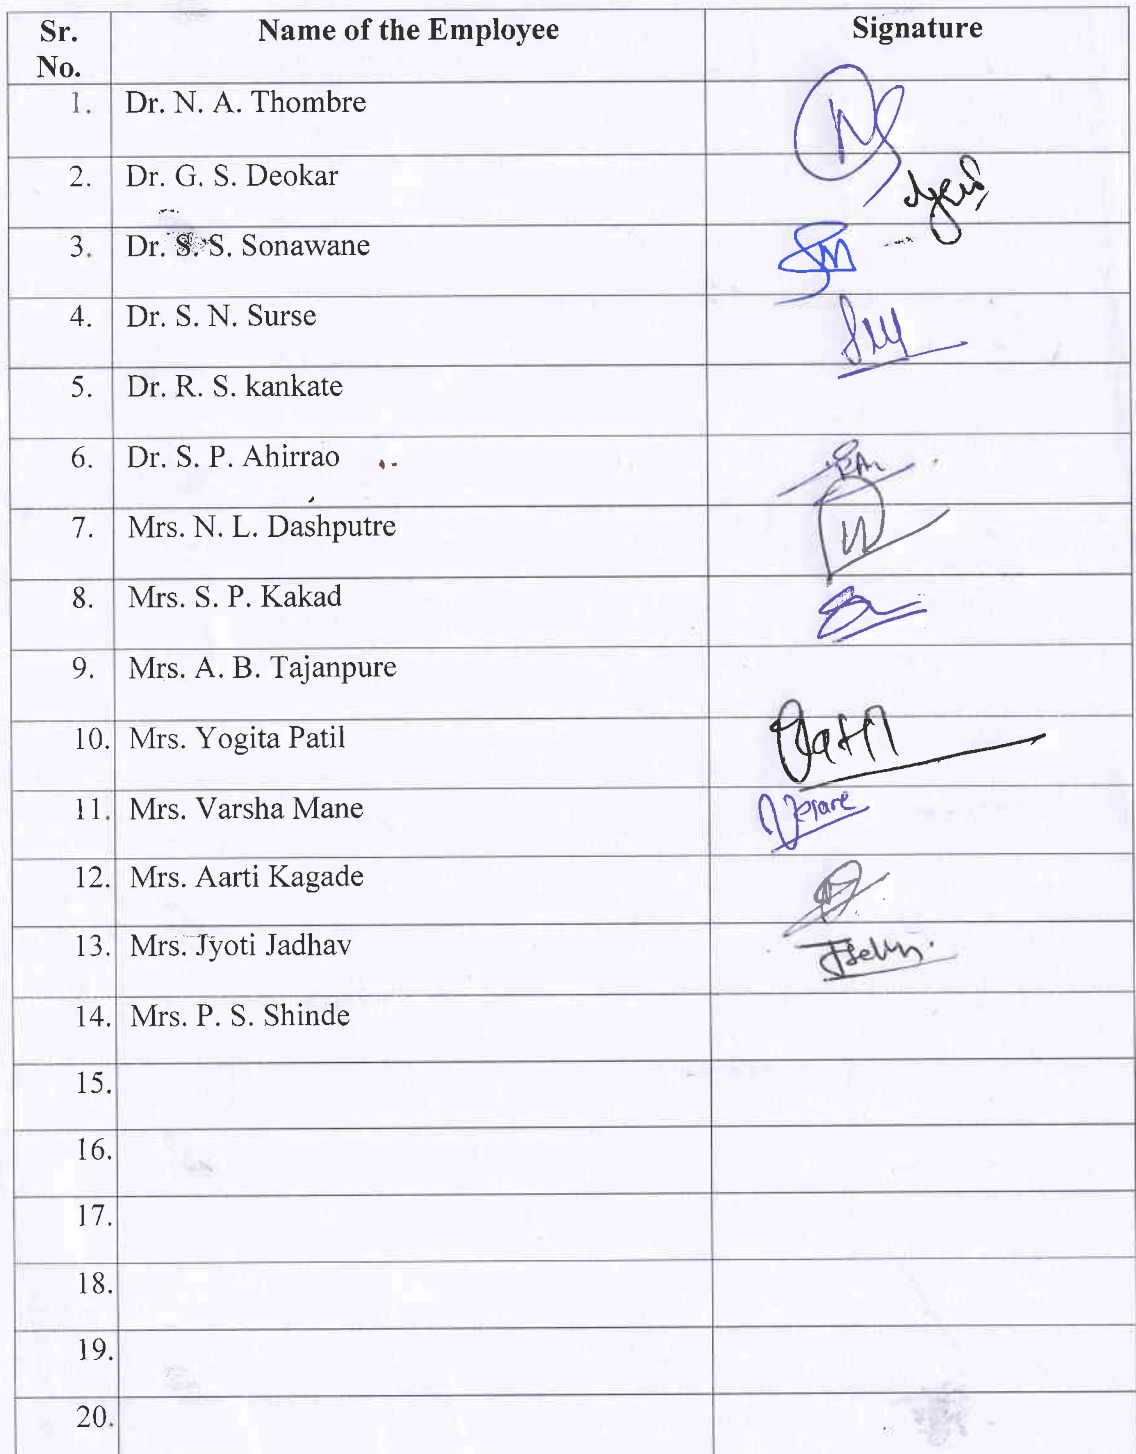 Sr. No. Name of the Employee Signature
1. Dr. N. A. Thombre
2. Dr. G. S. Deokar
3. Dr. S. S. Sonawane
4. Dr. S. N. Surse
5. Dr. R. S. kankate
6. Dr. S. P. Ahirrao
7. Mrs. N. L. Dashputre
8. Mrs. S. P. Kakad
9. Mrs. A. B. Tajanpure
10. Mrs. Yogita Patil
11. Mrs. Varsha Mane
12. Mrs. Aarti Kagade
13. Mrs. Jyoti Jadhav
14. Mrs. P. S. Shinde
15.
16.
17.
18.
19.
20.